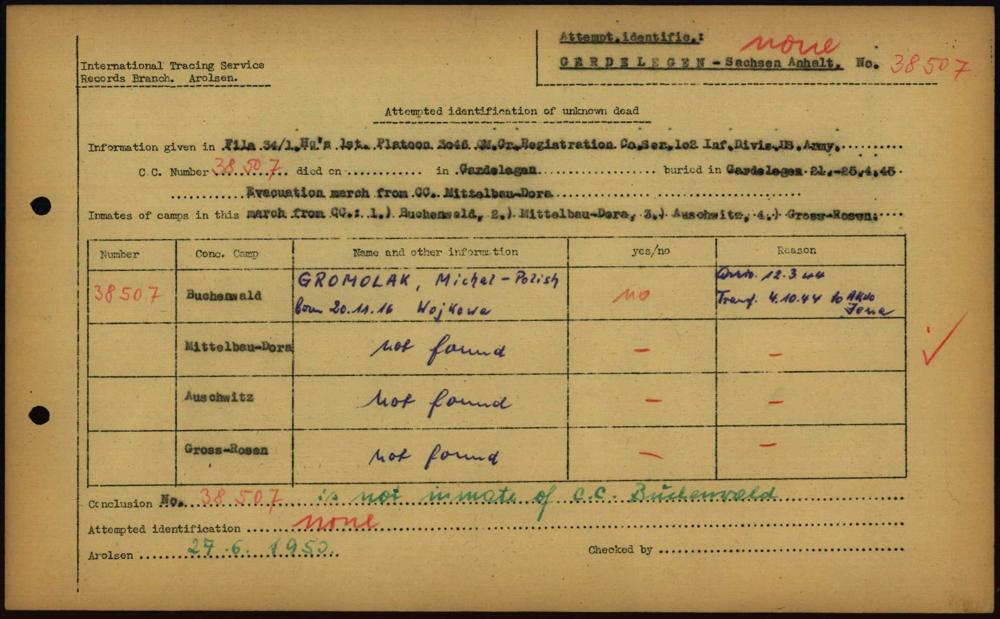 Attempt.identific.: none
International Tracing Service
Records Branch. Arolsen.
GARDELEGEN - Sachsen Anhalt. No. 38507
Attempted identification of unknown dead
Information given in File 34/1,Hq's 1st. Platoon 3046 QM.Gr.Registration Co.Ser.102 Inf.Divis.US.Army.
C.C. Number 38507 died on in Gardelegen buried in Gardelegen 21.-25.4.45
Evacuation march from CC. Mittelbau-Dora
Inmates of camps in this march from CC.: 1.) Buchenwald, 2.) Mittelbau-Dora, 3.) Auschwitz, 4.) Gross-Rosen.
Number Conc. Camp Name and other information yes/no Reason
38507 Buchenwald GROMOLAK, Michał-Polish no 12.3.44
born 20.11.16 Wojkowa Transf. 4.10.44 to AKdo
Jena
Mittelbau-Dora not found — —
Auschwitz not found — —
Gross-Rosen not found — —
Conclusion No. 38507 is not inmate of C.C. Buchenwald
Attempted identification none
Arolsen 27.6.1950. Checked by